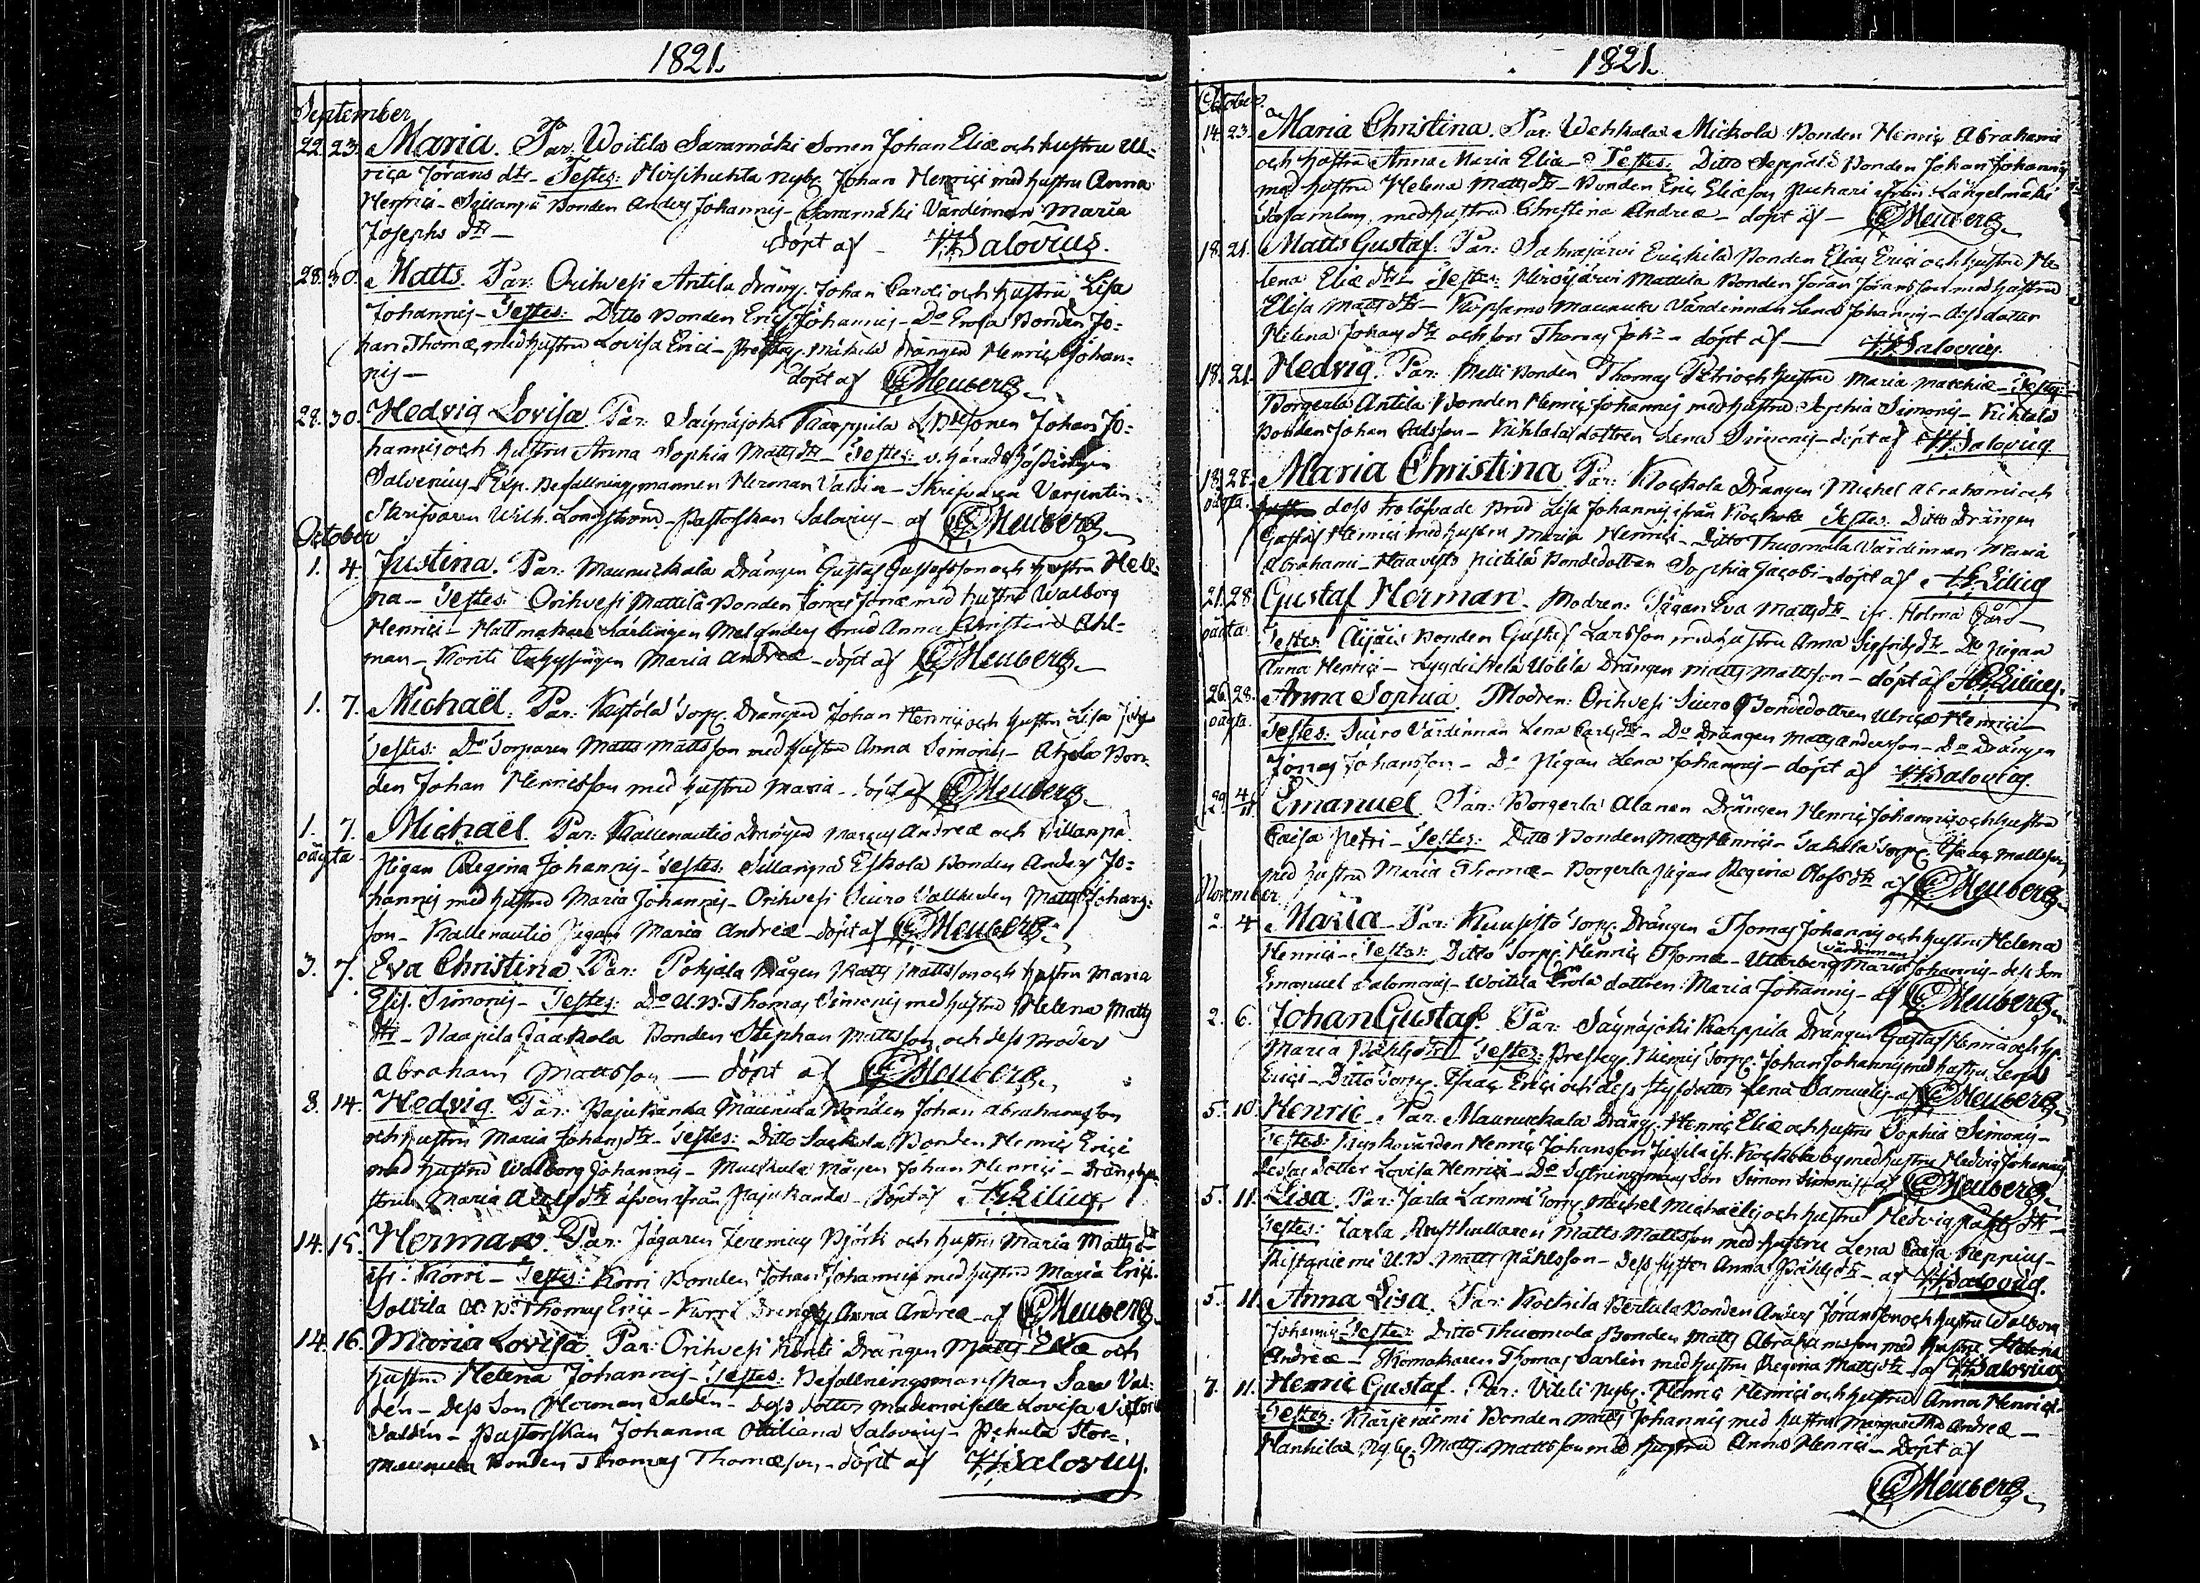 1821.
September
22. 23. Maria. Par. Woitila Saramäki Sonen Johan Eliæ och hustru Ul-
rica Jörans dtr - Testes: Hirsihuhta Nyb. Johan Henrici med hustru Anna
Henrici - Sillanpä Bonden Anders Johannis - Saramäki Värdinnan Maria
Josephs dtr - döpt af - Salovius.
28. 30. Matts. Par: Orihvesi Antila dräng. Johan Caroli och hustru Lisa
Johannis - Testes: Ditto Bonden Eric Johannis - Do Erola Bonden Jo=
han Thomæ med hustru Lovisa Erici - Mäkelä drängen Henric Johan-
nis - döpt af Heuberg
28. 30. Hedvig Lovisa. Par: Säynäjoki Karppila Sonen Johan Jo=
hannis och hustru Anna Sophia Matts dtr - Testes: v. Häradshöfdingen
Salvenius - Exp. Befallningsmannen Herman Valdin - Skrifvaren
Skrifvaren Wilh. Longström - Pastorskan Salovius - af Heuberg
October
1. 4. Justina. Par: Maunukkala Drängen Gustaf Gustafsson och hustru Hele-
na - Testes: Orihvesi Mattila Bonden Jonas Jonæ med hustru Walborg
Henrici - Hattmakare Lärlingen Brud Anna Christina Ahl-
man - Kontti Maria Andreæ - döpt af Heuberg
1. 7. Michaël. Par: Torp. Drängen Johan Henrici och hustru Lisa
Testes: Do Torparen Matts Mattsson med hustru Anna Simonis - Bon-
den Johan Henricsson med hustru Maria - döpt af Heuberg
1. 7. Michaël. Par: Kallenautio Drängen Marcus Andreæ och Sillanpä
oägta Pigan Regina Johannis - Testes: Sillanpä Eskola Bonden Anders Jo=
hannis med hustru Maria Johannis - Orihvesi Siuro Vallherden Matts Johans-
son - Kallenautio Pigan Maria Andreæ - döpt af Heuberg
3. 7. Eva Christina Par: Pohjala Mågen Matts Mattsson och hustru Maria
Elis. Simonis - Testes: Do U.B. Thomas Simonis med hustru Helena Matts
dtr - Haapila Jaakola Bonden Stephan Mattsson och dess Broder
Abraham Mattsson - döpt af Heuberg
8. 14. Hedvig. Par: Pajukanda Maunula Bonden Johan Abrahamsson
och hustru Maria Johans dtr - Testes: Ditto Bonden Henric Erici
med hustru Walborg Johannis - Mågen Johan Henrici -
Maria dtr äfven ifrån Pajukanda - döpt af Lilius
14. 15. Herman. Par: Jägaren Jeremias Björk och hustru Maria Matts d-
ifr: Körri - Testes: Korri Bonden Johan Johannis med hustru Maria Erici
Solttila U.B. Thomas Erici - Korri Anna Andreæ - af Heuberg
14. 16. Maria Lovisa. Par: Orihvesi Kontti Drängen Matts Eliæ och
hustru Helena Johannis - Testes: Befallningsmanskan Val-
den - dess Son Herman Valdén - dess dotter Mademoiselle Lovisa
Valdén - Pastorskan Johanna Otiliana Salovius - Pehula Stor-
maunula Bonden Thomas Thomæson - döpt af Salovius.
1821.
October.
14. 23. Maria Christina. Par: Wehkalax Mickola Bonden Henric Abrahami
och hustru Anna Maria Eliæ - Testes. Ditto Seppälä Bonden Johan Johannis
med hustru Helena Matts dtr - Bonden Eric Eliæson Puhari ifrån Längelmäki
församling, med hustru Christina Andreæ - döpt af - Heuberg
18. 21. Matts Gustaf. Par: Sahrajärvi Erickilä Bonden Elias Erici och hustru He-
lena Eliæ dtr - Testes: Hirvijärvi Mattila Bonden Jöran Jöransson med hustru
Elisa Matts dtr - Maunula Värdinnan Lena Johannis -
Helena Johans dtr och son Thomas - döpt af - Salovius.
18. 21. Hedvig. Par: Melli Bonden Thomas Petri och hustru Maria Mathiæ - Testes:
Borgerla Antila Bonden Henric Johannis med hustru Sophia Simonis -
Bonden Johan - dottren Lena Simonis - döpt af Salovius
18. 28. Maria Christina Par: Kockola Drängen Michel Abrahami och
oägta. dess trolofvade Brud Lisa Johannis ifrån Kockola Testes: Ditto Drängen
Gustaf Henrici med hustru Maria Henrici - Ditto Thuomala Värdinnan Maria
Abrahami - Haavisto Pietilä Bondedottren Sophia Jacobi - döpt af Lilius
21. 28. Gustaf Herman - Modren: Pigan Eva Matts dtr - ifr. Holma Gård -
oägta. Testes: Äijäis Bonden Gustaf Larsson med hustru Anna Sigfrids dtr - Do Pigan
Anna Henrici - Uotila Drängen Matts Mattsson - döpt af Lilius.
26. 28. Anna Sophia. Modren: Orihvesi Siuro Bondedottren Ulrica Henrici -
oägta. Testes: Siuro Värdinnan Lena Carls dtr - Do Drängen Matts Andersson - Do Drängen
Jonas Johansson - Do Pigan Lena Johannis - döpt af Salovius.
29. 4/11 Emanuel. Par: Borgerla Alanen Drängen Henric Johannis och hustru
Caisa Petri - Testes: Ditto Bonden Matts Henrici - Torp. Isaac Mattsson
med hustru Maria Thomæ - Borgerla Pigan Regina Olofs dtr af Heuberg
November
2. 4. Maria - Par: Kuusisto Torp. Drängen Thomas Johannis och hustru Helena
Henrici - Testes: Ditto Torp. Henric Thomæ - Utterberg Värdinnan Maria Johannis - dess Son
Emanuel Salomonis - Woitila Erola dottren: Maria Johannis - af Heuberg
2. 6. Johan Gustaf. Par: Säynäjoki Karppila Drängen Gustaf Henrici och h.
Maria Påhls dtr - Testes: Prestg. Niemis Torp. Johan Johannis med hustru
Erici - Ditto Torp. Isac Erici och dess styfdotter Lena Samuelis - af Heuberg
5. 10. Henric. Par: Maunukkala Dräng. Henric Eliæ och hustru Sophia Simonis -
Testes: Kyrkovärden Henric Johansson Jussila ifr. Kockolaby med hustru Hedvig Johannis
dess dotter Lovisa Henrici - Do Sytningsmans Son Simon Simonis af Heuberg
5. 11. Lisa. Par: Jarla Lammi Torp. Michel Michaëlis och hustru Hedvig Påhls dtr -
Testes: Jarla Rusthållaren Matts Mattsson med hustru Lena Caisa Reppius -
Ristaniemi U.B. Matts Påhlsson - dess syster Anna Påhls dtr - af Salovius.
5. 11. Anna Lisa. Par: Kockila Bertula Bonden Anders Jöransson och hustru Walborg
Johannis - Testes: Ditto Thuomola Bonden Matts Abrahamsson med hustru Helena
Andreæ - Skomakaren Thomas Sarlin med hustru Regina Matts dtr - af Salovius
7. 11. Henric Gustaf. Par: Viteli Nyb. Henric Henrici och hustru Anna Henrici
Testes: Kärjeniemi Bonden Matts Johannis med hustru Margaretha Andreæ -
Hankila Nyb. Matts Mattsson med hustru Anna Henrici - döpt af
Heuberg